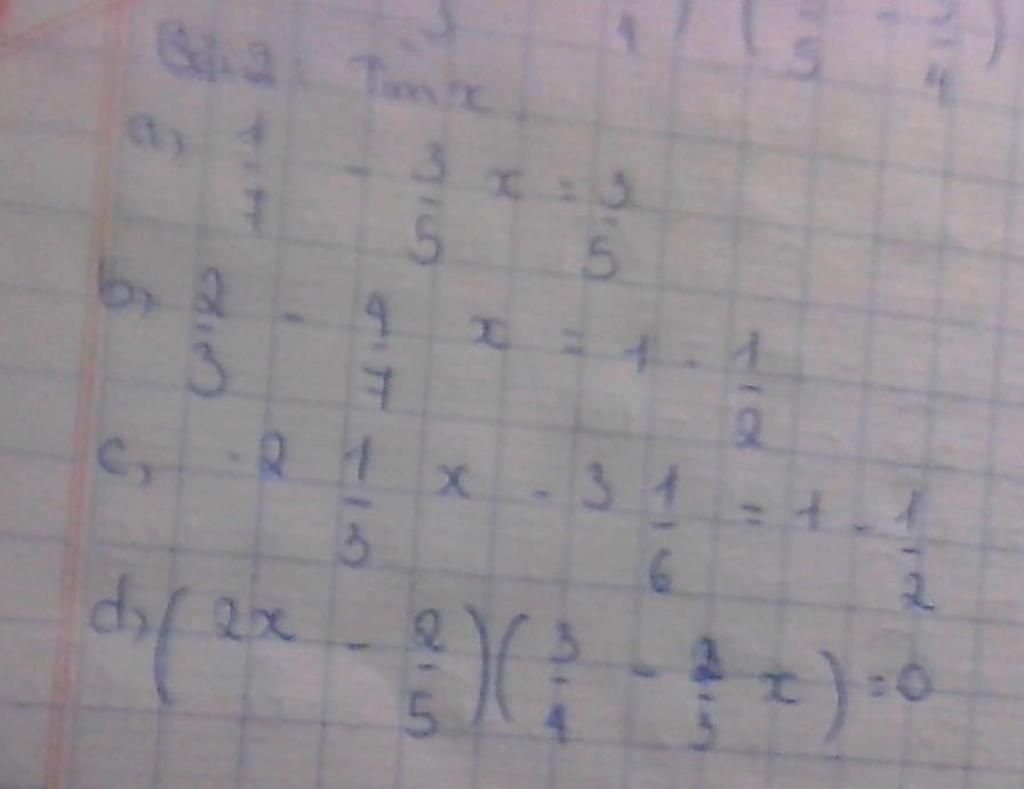 Bài 2: Tìm x
a, 1/7 - 3/5 x = 3/5
b, 2/3 - 4/7 x = 1 - 1/2
c, -2 1/3 x - 3 1/6 = 1 - 1/2
d, (2x - 2/5)(3/4 - 2/3 x) = 0